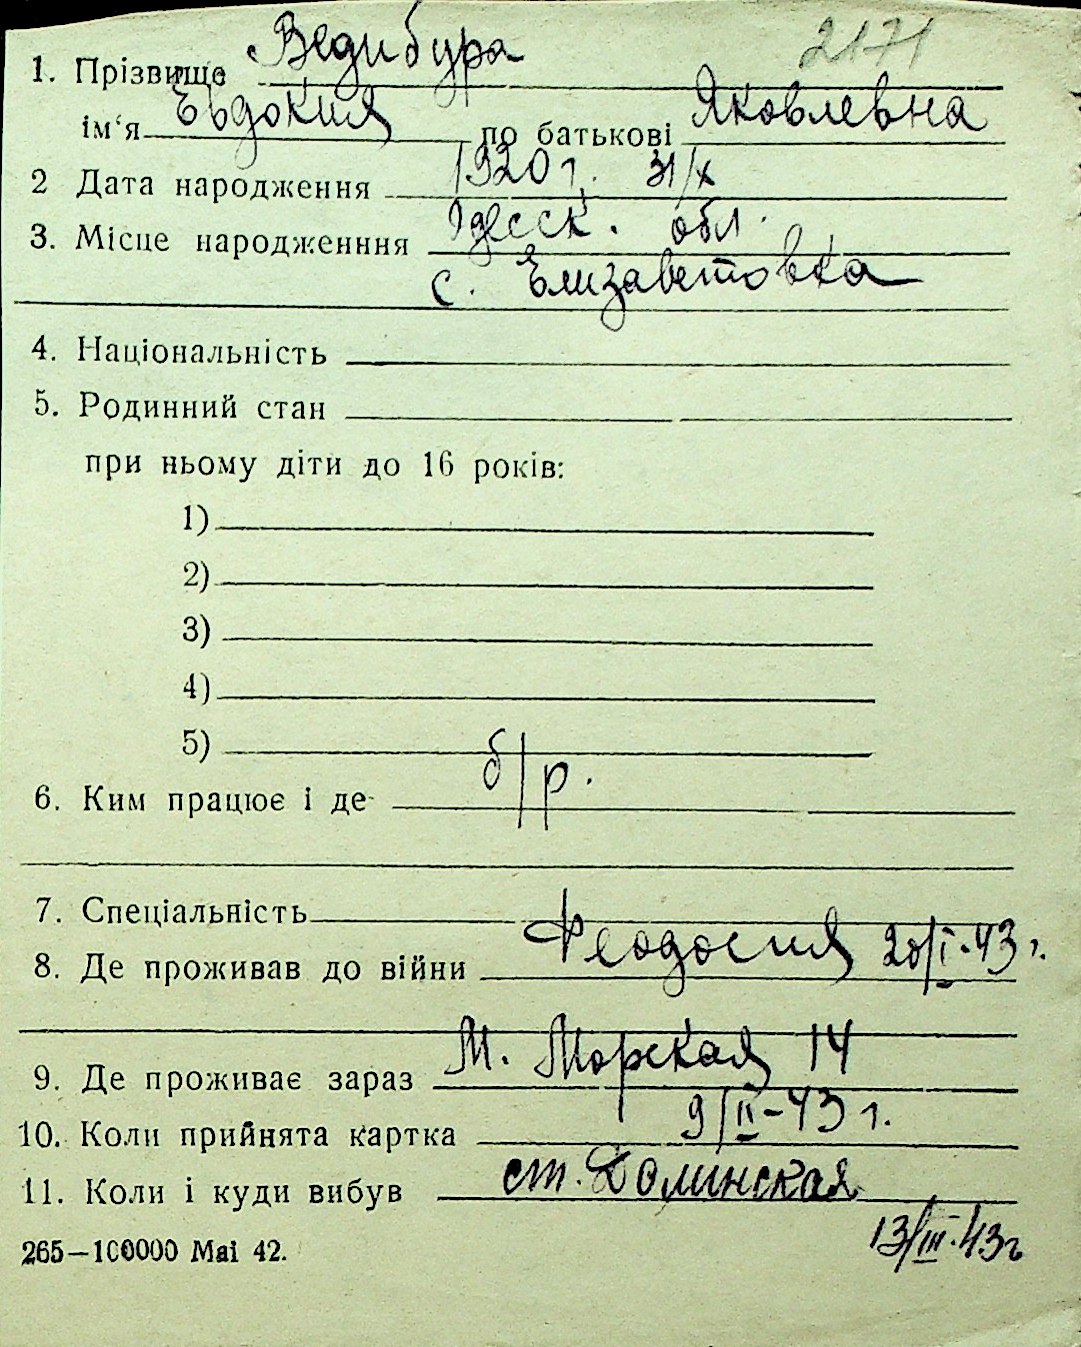 2171
1. Прізвище Ведибура
ім‘я Евдокия по батькові Яковлевна
2 Дата народження 1920 г. 31/X
3. Місце народженння Одесск. обл.
с. Елизаветовка
4. Національність
5. Родинний стан
при ньому діти до 16 років:
1)
2)
3)
4)
5)
6. Ким працює і де б/р.
7. Спеціальність
8. Де проживав до війни Феодосия 20/I-43 г.
9. Де проживає зараз М. Морская 14
10. Коли прийнята картка 9/II-43 г.
11. Коли і куди вибув ст. Долинская
13/III.43г
265—100000 Mai 42.